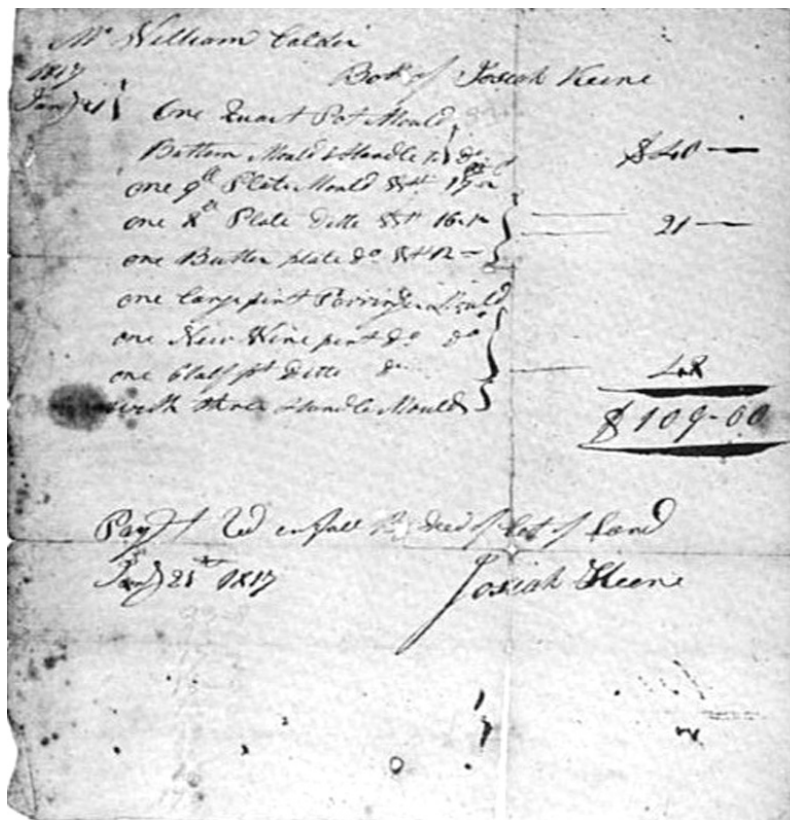 Mr William Calder
1817 Bot of Josiah Keene
Jany 21 One Quart Pot Mould
Bottom Mould & Handle do $40 —
one 9 in Plate Mould Wt 17
one 8 in Plate Ditto Wt 16
one Butter plate do Wt 12 — 21 —
one large pint Porringer Mould
one New Wine pint do do
one Half pt Ditto do 48
with three Handle Moulds $109-00
Payt Recd in full Deed of lot of Land
Jany 21st 1817 Josiah Keene